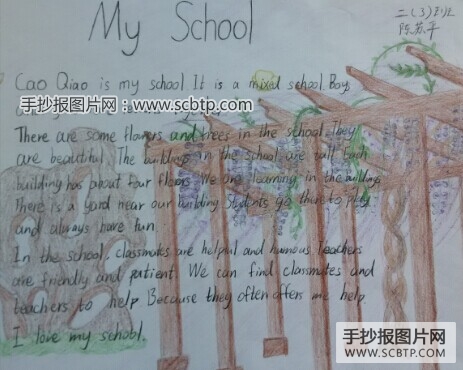 My School
二(3)班
陈苏平
Cao Qiao is my school. It is a mixed school. Boy
手抄报图片网：www.scbtp.com
There are some flowers and trees in the school. They
are beautiful. The buildings in the school are tall. Each
building has about four floors. We are learning in the buildings
There is a yard near our building. Students go there to play
and always have fun.
In the school, classmates are helpful and humous. Teachers
are friendly and patient. We can find classmates and
teachers to help. Because they often offers me help.
I love my school.
手抄报图片网
WWW.SCBTP.COM